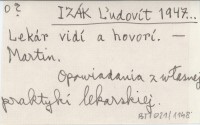 0?
IZÁK Ľudovít 1947...
Lekár vidí a hovorí. —
Martin.
Opowiadania z własnej
praktyki lekarskiej.